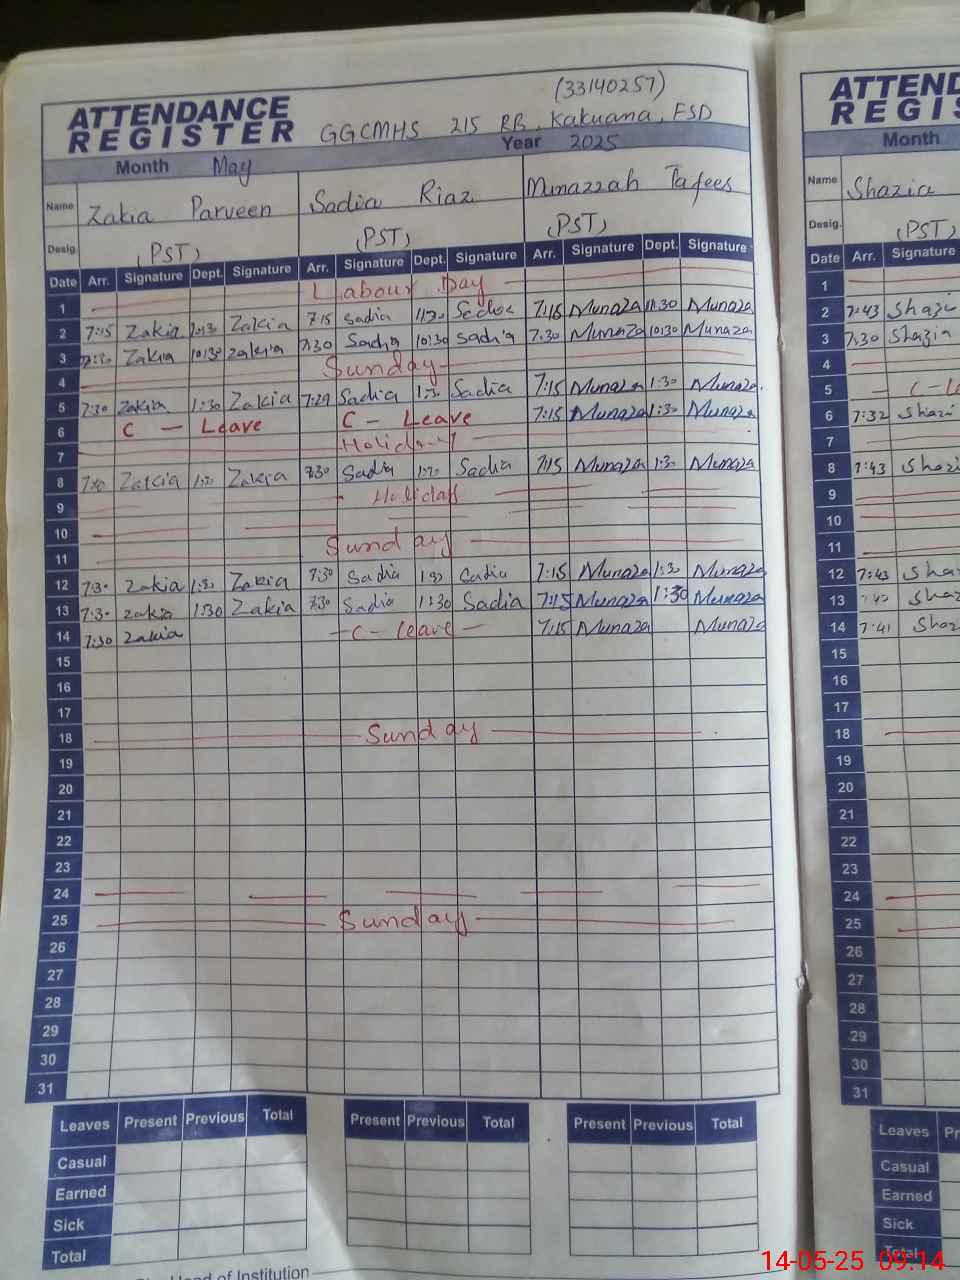 (33140257)
ATTENDANCE REGISTER GGCMHS 215 RB, Kakuana, FSD
Month May Year 2025
Name Zakia Parveen Sadia Riaz Munazzah Tafees
Desig. (PST) (PST) (PST)
Date Arr. Signature Dept. Signature Arr. Signature Dept. Signature Arr. Signature Dept. Signature
1 Labour Day
2 7:15 Zakia Zakia 7:15 Sadia Sadia 7:15 Munaza 11:30 Munaza
3 Zakia 10:30 Zakia 7:30 Sadia 10:30 Sadia 7:30 Munaza 10:30 Munaza
4 Sunday
5 7:30 Zakia 1:30 Zakia 7:29 Sadia 1:30 Sadia 7:15 Munaza 1:30 Munaza
6 C - Leave C - Leave 7:15 Munaza 1:30 Munaza
7 Holiday
8 Zakia Zakia 7:30 Sadia Sadia 7:15 Munaza 1:30 Munaza
9 Holiday
10
11 Sunday
12 7:30 Zakia 1:30 Zakia 7:30 Sadia 1:30 Sadia 7:15 Munaza 1:30 Munaza
13 7:30 Zakia 1:30 Zakia 7:30 Sadia 1:30 Sadia 7:15 Munaza 1:30 Munaza
14 7:30 Zakia - C - Leave - 7:15 Munaza Munaza
15
16
17
18 Sunday
19
20
21
22
23
24
25 Sunday
26
27
28
29
30
31
Leaves Present Previous Total Present Previous Total Present Previous Total
Casual
Earned
Sick
Total
Head of Institution
Month
Name Shazia
Desig. (PST)
Date Arr. Signature
1
2 7:43 Shazi
3 7:30 Shazia
4
5
6 7:32 Shazi
7
8 7:43 Shazi
9
10
11
12 7:43 Sha
13 Shaz
14 7:41 Shaz
15
16
17
18
19
20
21
22
23
24
25
26
27
28
29
30
31
Leaves
Casual
Earned
Sick
Total
14-05-25 09:14